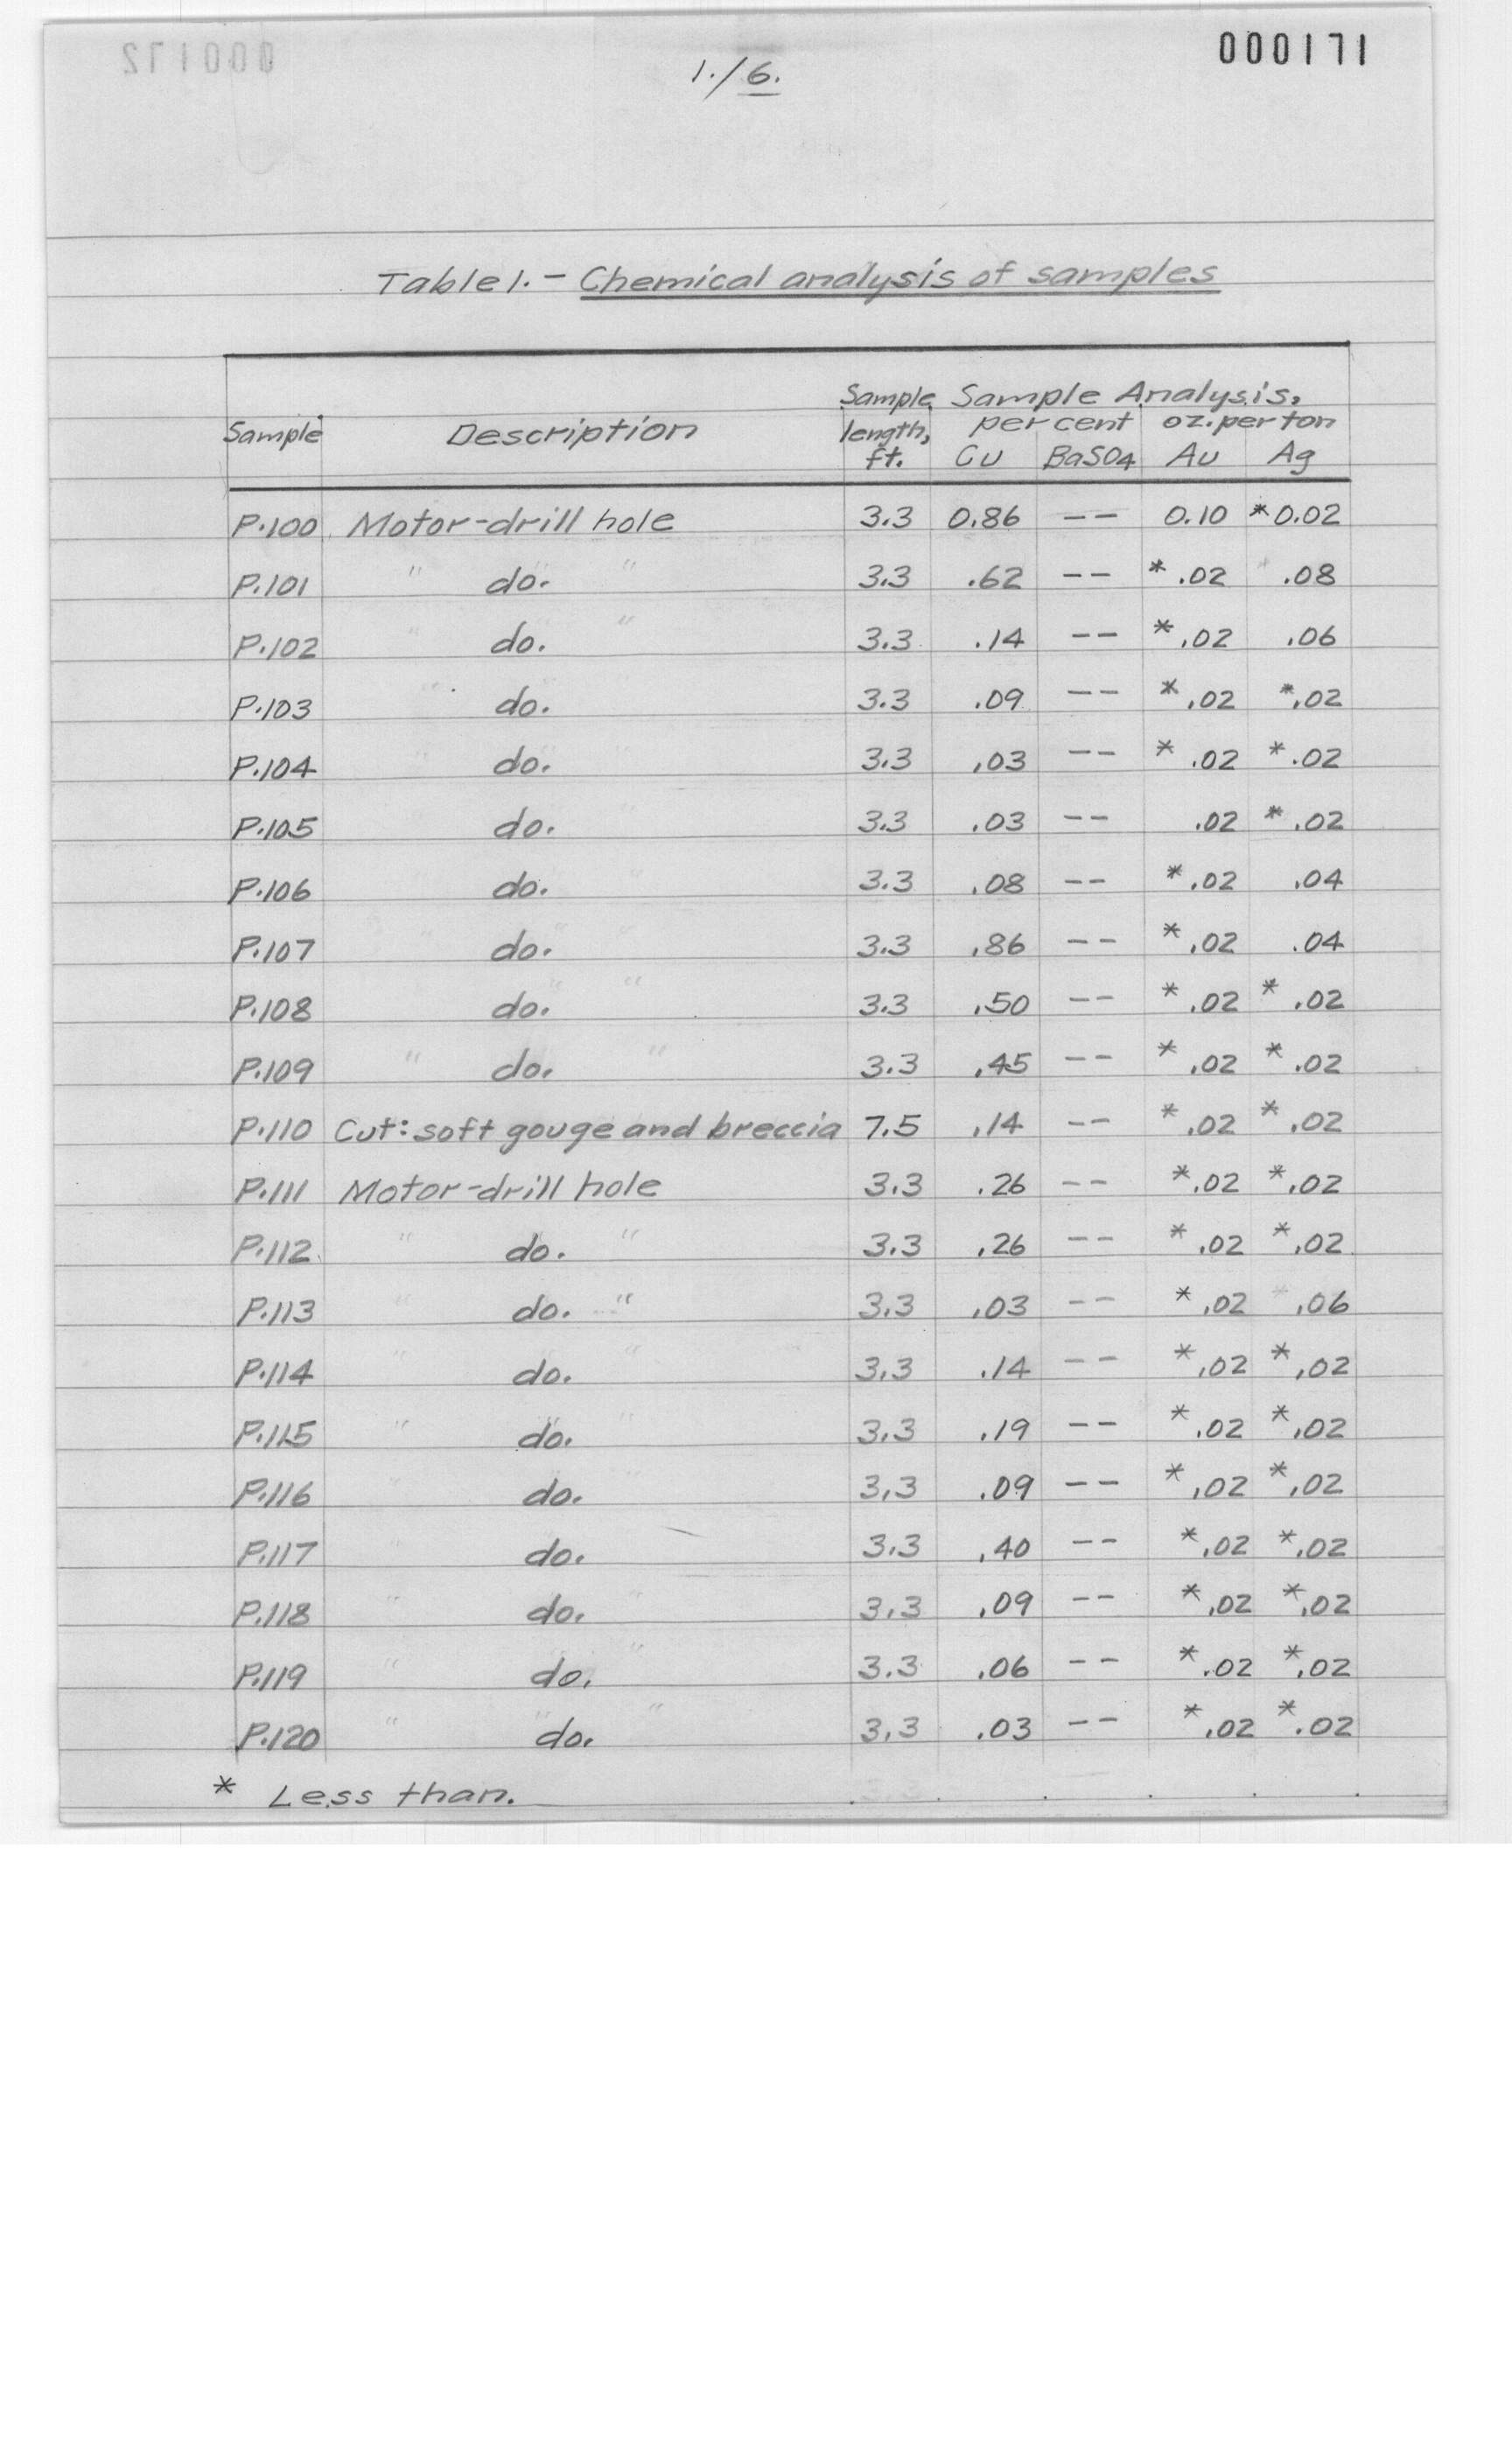 000171
1./6.
Table 1. - Chemical analysis of samples
Sample Description Sample length, ft. Sample Analysis, per cent oz. per ton
Cu BaSO4 Au Ag
P.100 Motor-drill hole 3.3 0.86 -- 0.10 *0.02
P.101 " do. " 3.3 .62 -- *.02 .08
P.102 " do. " 3.3 .14 -- *.02 .06
P.103 do. 3.3 .09 -- *.02 *.02
P.104 do. 3.3 .03 -- *.02 *.02
P.105 do. 3.3 .03 -- .02 *.02
P.106 do. 3.3 .08 -- *.02 .04
P.107 do. 3.3 .86 -- *.02 .04
P.108 do. " 3.3 .50 -- *.02 *.02
P.109 " do. " 3.3 .45 -- *.02 *.02
P.110 Cut: soft gouge and breccia 7.5 .14 -- *.02 *.02
P.111 Motor-drill hole 3.3 .26 -- *.02 *.02
P.112 " do. " 3.3 .26 -- *.02 *.02
P.113 " do. " 3.3 .03 -- *.02 .06
P.114 " do. " 3.3 .14 -- *.02 *.02
P.115 " do. " 3.3 .19 -- *.02 *.02
P.116 do. 3.3 .09 -- *.02 *.02
P.117 do. 3.3 .40 -- *.02 *.02
P.118 " do. 3.3 .09 -- *.02 *.02
P.119 " do. " 3.3 .06 -- *.02 *.02
P.120 " do. " 3.3 .03 -- *.02 *.02
* Less than.